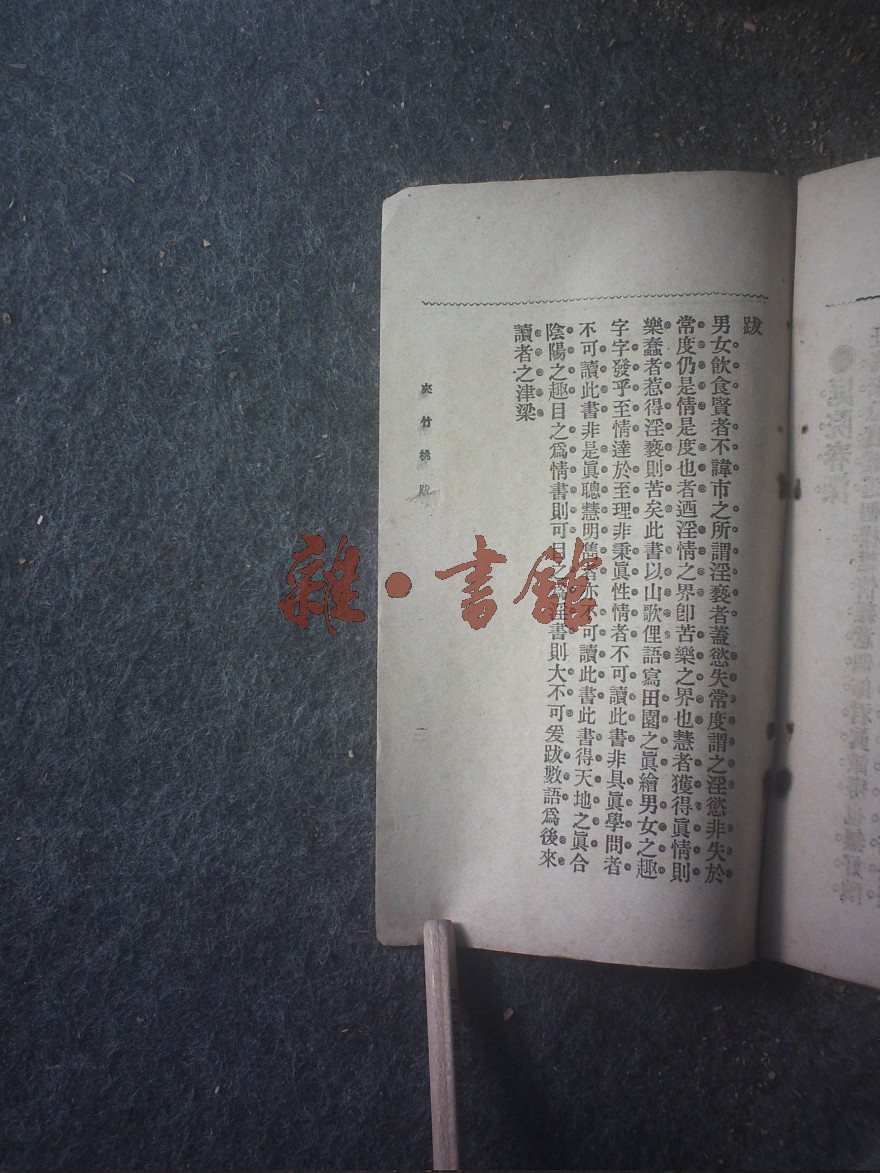 跋
男女飲食賢者不諱市之所謂淫褻者蓋慾失常度謂之淫慾非失於
常度仍是情是度也者迺淫情之界卽苦樂之界也慧者獲得眞情則
樂蠢者惹得淫褻則苦矣此書以山歌俚語寫田園之眞繪男女之趣
字字發乎至情達於至理非秉眞性情者不可讀此書非具眞學問者
不可讀此書非是眞聰慧明雋者亦不可讀此書此書得天地之眞合
陰陽之趣目之爲情書則可目之爲淫書則大不可爰跋數語爲後來
讀者之津梁
夾竹桃 跋
二
雜·書館
庭院春深